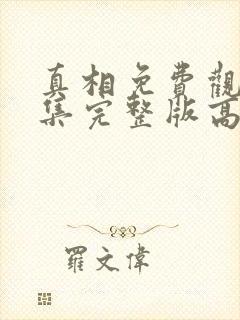 真相免費觀
集完整版高
羅文偉